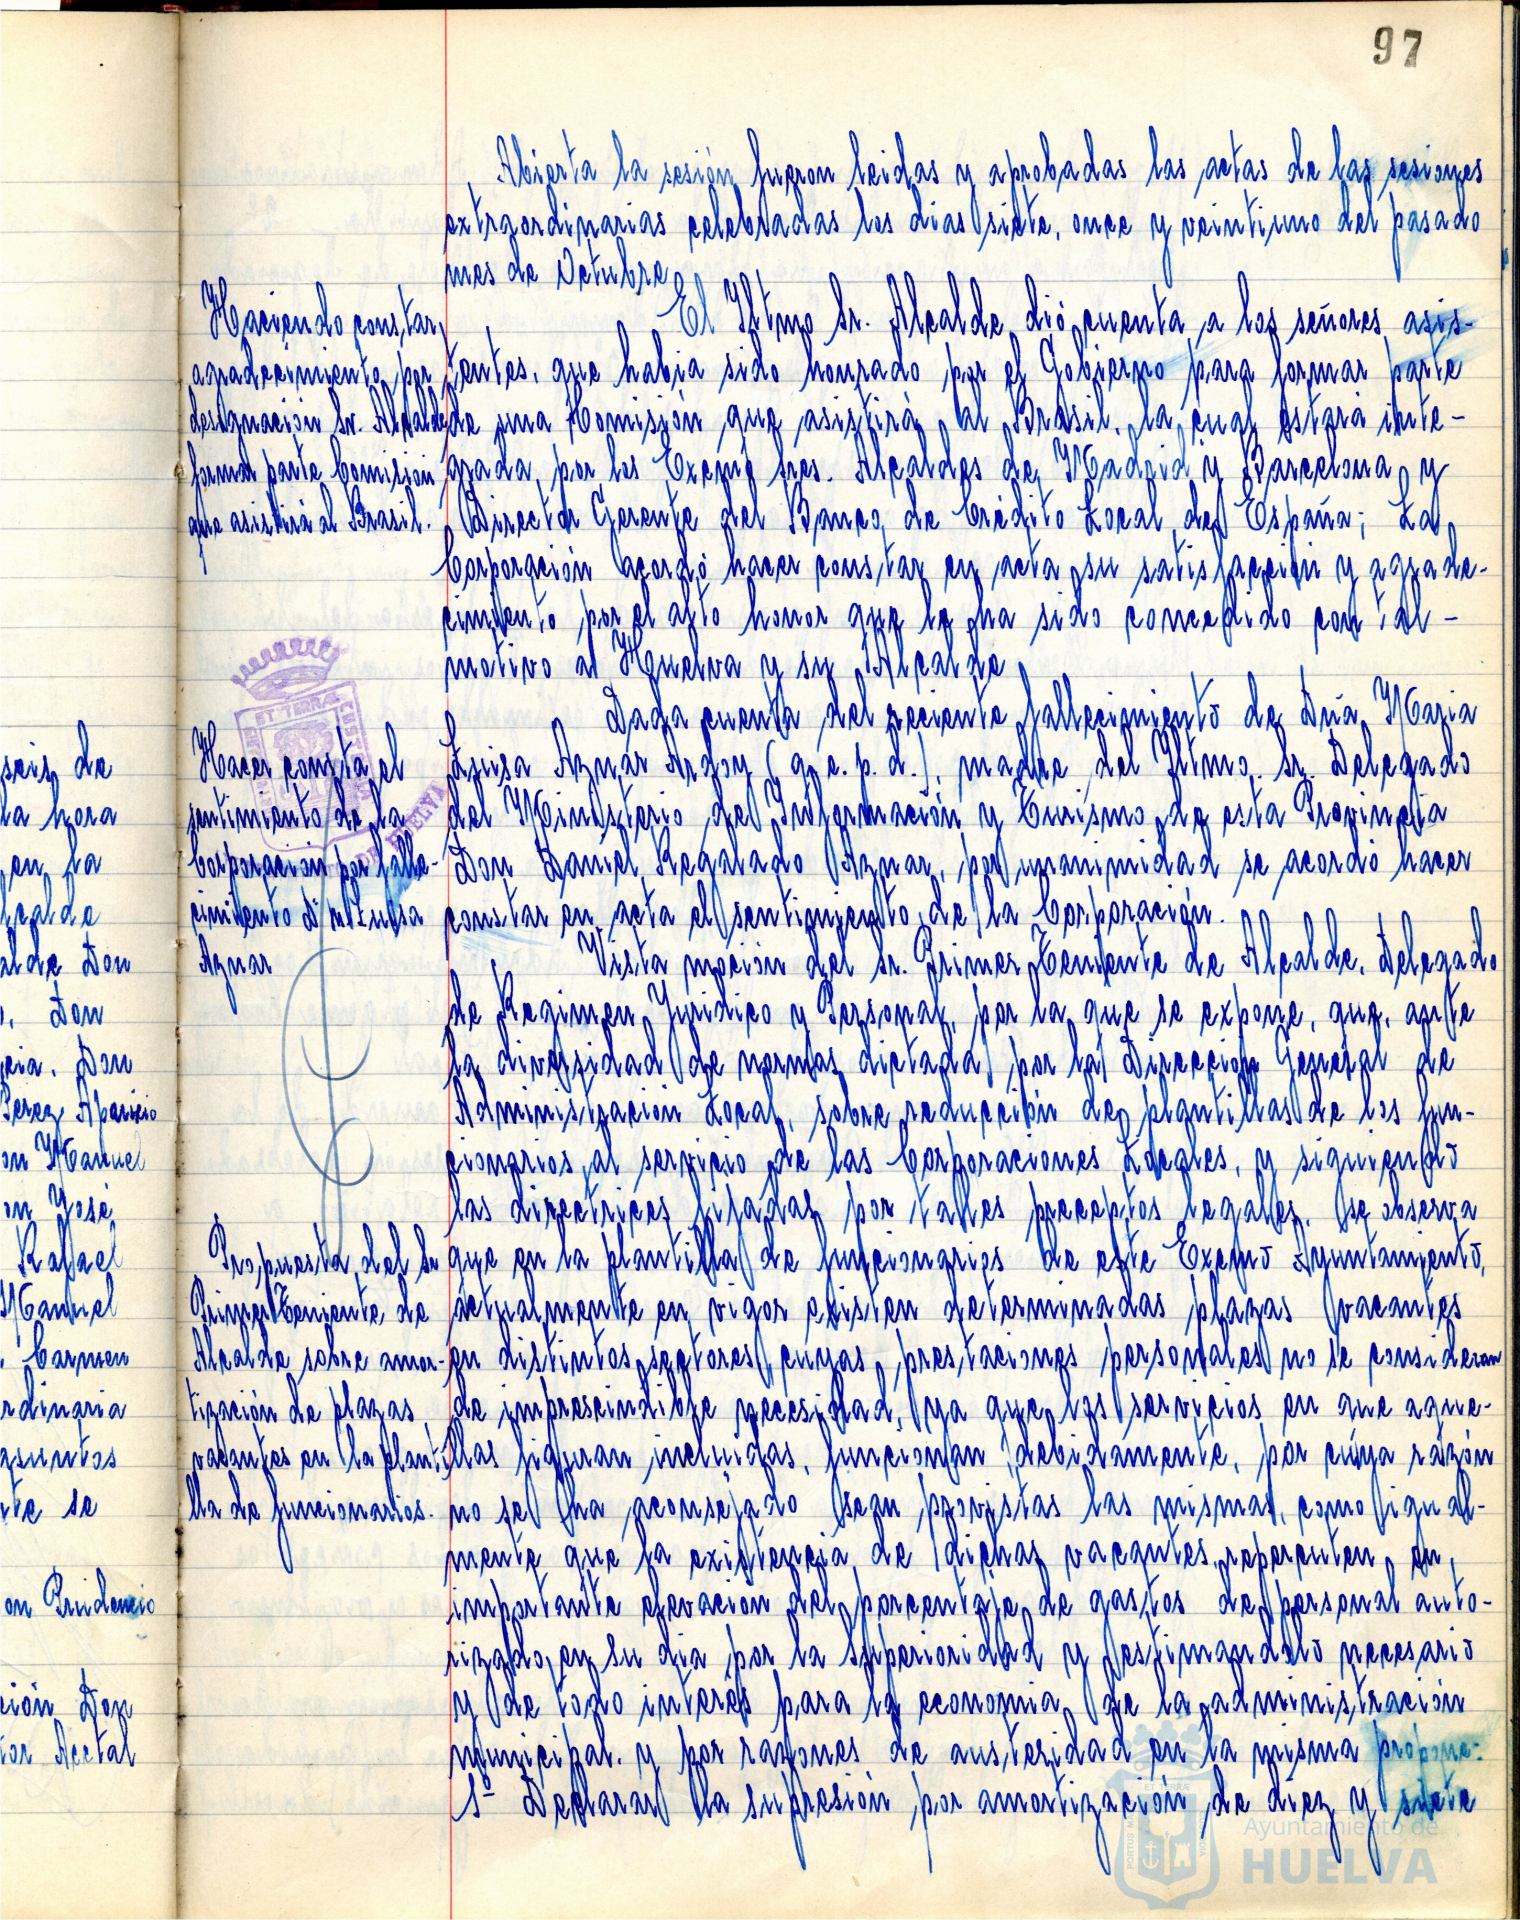 97
Abierta la sesión fueron leidas y aprobadas las actas de las sesiones
extraordinarias celebradas los dias siete, once y veintiuno del pasado
mes de Octubre
Haciendo constar
agradecimiento por
designación Sr. Alcalde
formar parte Comision
que asistirá al Brasil.
El Iltmo Sr. Alcalde dió cuenta a los señores asis-
tentes, que habia sido honrado por el Gobierno para formar parte
de una Comisión que asistirá al Brasil, la cual estará inte-
grada por los Excmo Sres. Alcaldes de Madrid y Barcelona y
Director Gerente del Banco de Crédito Local de España; La
Corporación acordó hacer constar en acta su satisfacción y agrade-
cimiento por el alto honor que le ha sido concedido con tal -
motivo a Huelva y su Alcalde
Hacer constar el
sentimiento de la
Corporación por falle-
cimiento Dª Mª Luisa
Aznar
Dada cuenta del reciente fallecimiento de Dña Maria
Luisa Aznar (q.e.p.d.), madre del Iltmo. Sr. Delegado
del Ministerio de Información y Turismo de esta Provincia
Don Daniel Regalado Aznar, por unanimidad se acordó hacer
constar en acta el sentimiento de la Corporación.
Vista moción del Sr. Primer Teniente de Alcalde, Delegado
de Regimen Juridico y Personal, por la que se expone, que, ante
la diversidad de normas dictadas por la Dirección General de
Administración Local, sobre reducción de plantillas de los fun-
cionarios al servicio de las Corporaciones Locales, y siguiendo
las directrices fijadas por tales preceptos legales, se observa
Propuesta del Sr
Primer Teniente de
Alcalde sobre amor-
tización de plazas
vacantes en la planti
lla de funcionarios.
que en la plantilla de funcionarios de este Excmo Ayuntamiento,
actualmente en vigor existen determinadas plazas vacantes
en distintos sectores, cuyas prestaciones personales no se consideran
de imprescindible necesidad, ya que los servicios en que aque-
llas figuran incluidas, funcionan debidamente, por cuya razón
no se ha aconsejado sean provistas las mismas, como igual-
mente que la existencia de dichas vacantes repercuten en
importante elevación del porcentaje de gastos de personal auto-
rizado en su dia por la Superioridad y estimandolo necesario
y de todo interés para la economia de la administración
municipal y por razones de austeridad en la misma propone:
1º Declarar la supresión, por amortización de diez y siete
seis de
la hora
en la
Alcalde
alde Don
Don
cia. Don
Perez Aparicio
on Manuel
on José
Rafael
Manuel
Carmen
rdinaria
asuntos
nte se
on Prudencio
ción Don
tor Acctal
Ayuntamiento de
HUELVA